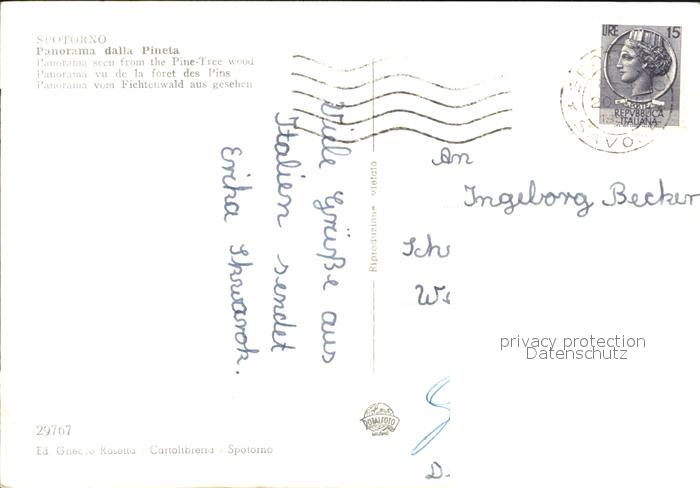 SPOTORNO
Panorama dalla Pineta
Panorama seen from the Pine-Tree wood
Panorama vu de la foret des Pins
Panorama vom Fichtenwald aus gesehen
Viele Grüße aus
Italien sendet
Erika Skwarok.
29767
Ed. Rosetta - Cartolibreria - Spotorno
Riproduzione vietata
ROTALFOTO
MILANO
LIRE 15
POSTE
REPVBBLICA
ITALIANA
SAVO
An
Ingeborg Becker
Sch
D.
privacy protection
Datenschutz